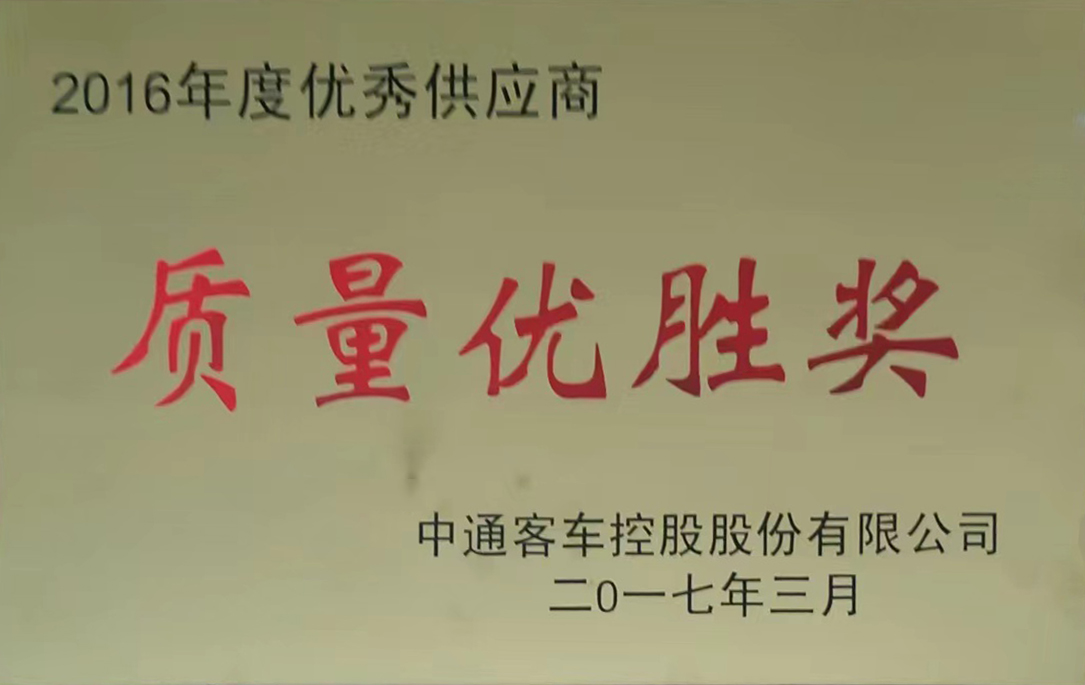 2016年度优秀供应商
质量优胜奖
中通客车控股股份有限公司
二0一七年三月